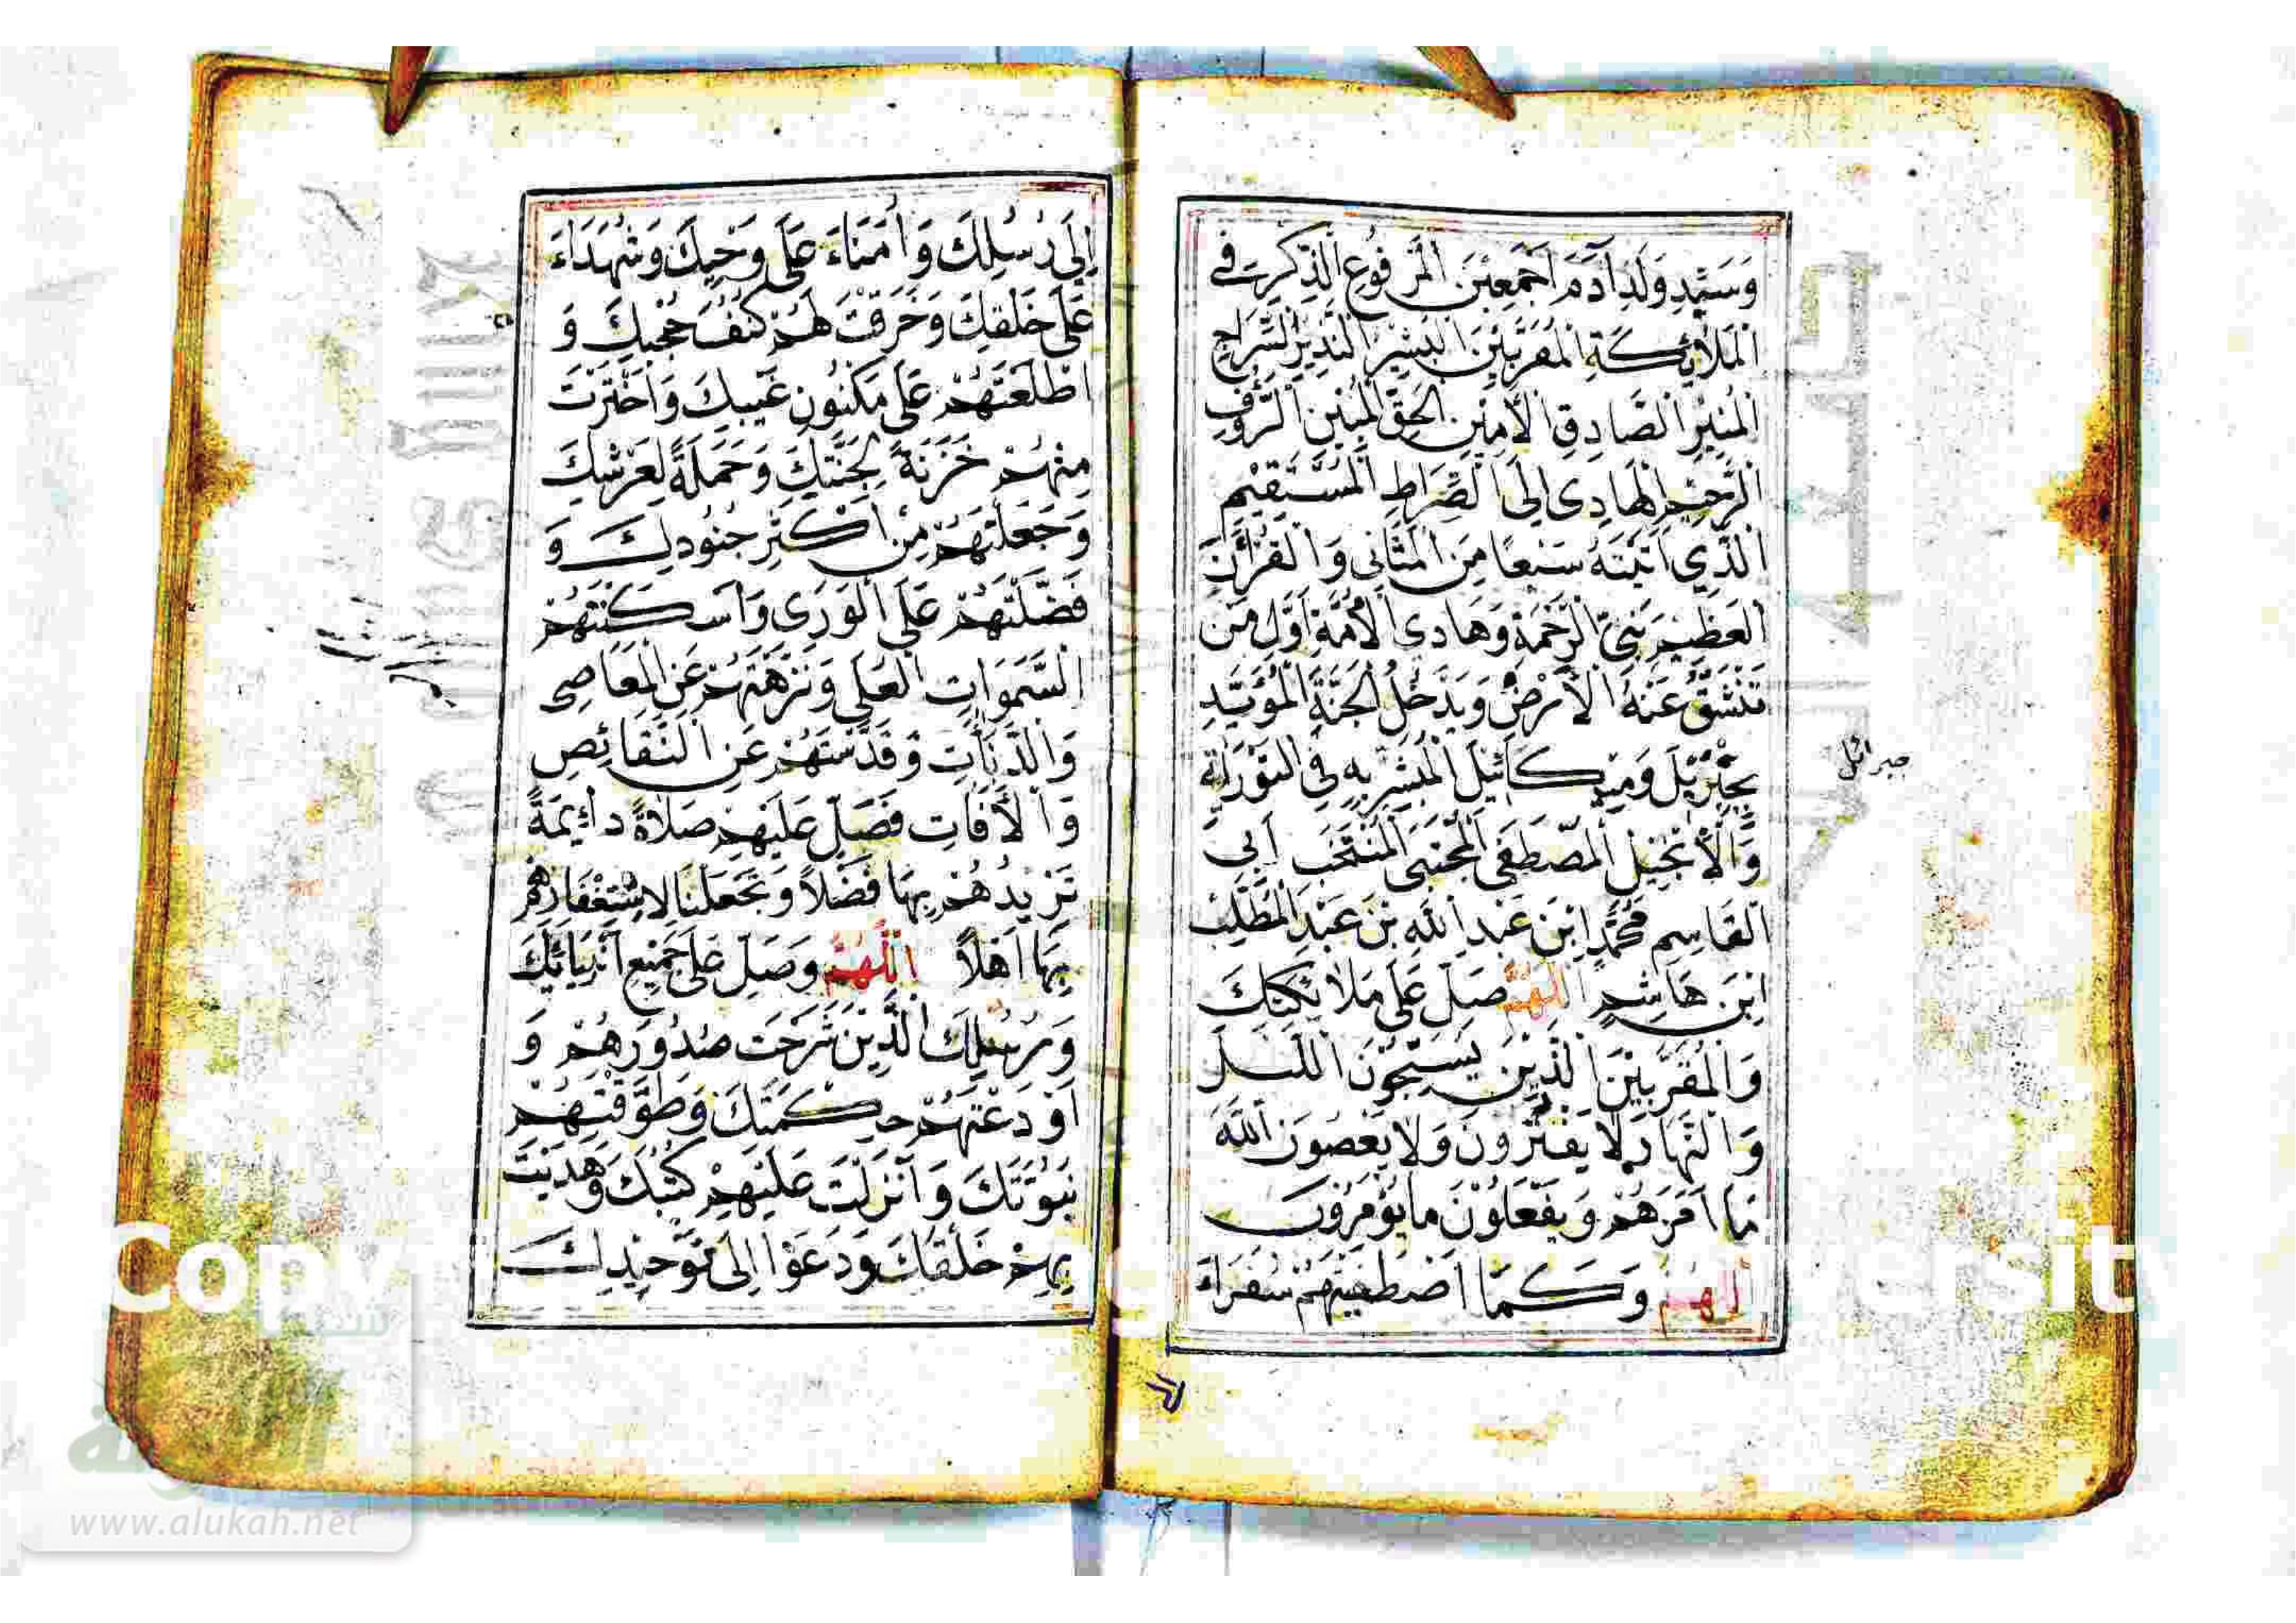 وَسَيِّدِ وَلَدِ آدَمَ اَجْمَعِيْنَ الْمَرْفُوعِ الذِّكْرِ فِي
الْمَلَائِكَةِ الْمُقَرَّبِيْنَ الْبَشِيْرِ النَّذِيْرِ السِّرَاجِ
الْمُنِيْرِ الصَّادِقِ الْاَمِيْنِ الْحَقِّ الْمُبِيْنِ الرَّؤُفِ
الرَّحِيْمِ الْهَادِى اِلَى الصِّرَاطِ الْمُسْتَقِيْمِ
الَّذِي آتَيْتَهُ سَبْعًا مِنَ الْمَثَانِى وَالْقُرْاٰنَ
الْعَظِيْمَ نَبِيِّ الرَّحْمَةِ وَهَادِى الْاُمَّةِ اَوَّلِ مَنْ
تَنْشَقُّ عَنْهُ الْاَرْضُ وَيَدْخُلُ الْجَنَّةَ الْمُؤَيَّدِ
بِجِبْرِيْلَ وَمِيْكَائِيْلَ الْمُبَشَّرِ بِهِ فِى التَّوْرَاةِ
وَالْاِنْجِيْلِ الْمُصْطَفَى الْمُجْتَبَى الْمُنْتَخَبِ اَبِى
الْقَاسِمِ مُحَمَّدِ ابْنِ عَبْدِ اللّٰهِ بْنِ عَبْدِ الْمُطَّلِبِ
ابْنِ هَاشِمٍ اَللّٰهُمَّ صَلِّ عَلَى مَلَائِكَتِكَ
وَالْمُقَرَّبِيْنَ الَّذِيْنَ يُسَبِّحُوْنَ اللَّيْلَ
وَالنَّهَارَ لَا يَفْتُرُونَ وَلَا يَعْصُونَ اللّٰهَ
مَا اَمَرَهُمْ وَيَفْعَلُوْنَ مَا يُؤْمَرُوْنَ
اَللّٰهُمَّ وَكَمَا اصْطَفَيْتَهُمْ سُفَرَاءَ
جبرائيل
اِلَى رُسُلِكَ وَاُمَنَاءَ عَلَى وَحْيِكَ وَشُهَدَاءَ
عَلَى خَلْقِكَ وَخَرَقْتَ لَهُمْ كُنُفَ حُجُبِكَ وَ
اَطْلَعْتَهُمْ عَلَى مَكْنُونِ غَيْبِكَ وَاخْتَرْتَ
مِنْهُمْ خَزَنَةً لِجَنَّتِكَ وَحَمَلَةً لِعَرْشِكَ
وَجَعَلْتَهُمْ مِنْ اَكْثَرِ جُنُودِكَ وَ
فَضَّلْتَهُمْ عَلَى الْوَرَى وَاَسْكَنْتَهُمُ
السَّمَوَاتِ الْعُلَى وَنَزَّهْتَهُمْ عَنِ الْمَعَاصِى
وَالدَّنَاآتِ وَقَدَّسْتَهُمْ عَنِ النَّقَائِصِ
وَالْاٰفَاتِ فَصَلِّ عَلَيْهِمْ صَلَاةً دَائِمَةً
تَزِيْدُهُمْ بِهَا فَضْلًا وَتَجْعَلُنَا لِاسْتِغْفَارِهِمْ
بِهَا اَهْلًا اَللّٰهُمَّ وَصَلِّ عَلَى جَمِيْعِ اَنْبِيَائِكَ
وَرُسُلِكَ الَّذِيْنَ شَرَحْتَ صُدُوْرَهُمْ وَ
اَوْدَعْتَهُمْ حِكْمَتَكَ وَطَوَّقْتَهُمْ
نُبُوَّتَكَ وَاَنْزَلْتَ عَلَيْهِمْ كُتُبَكَ وَهَدَيْتَ
بِهِمْ خَلْقَكَ وَدَعَوْا اِلَى تَوْحِيْدِكَ
www.alukah.net